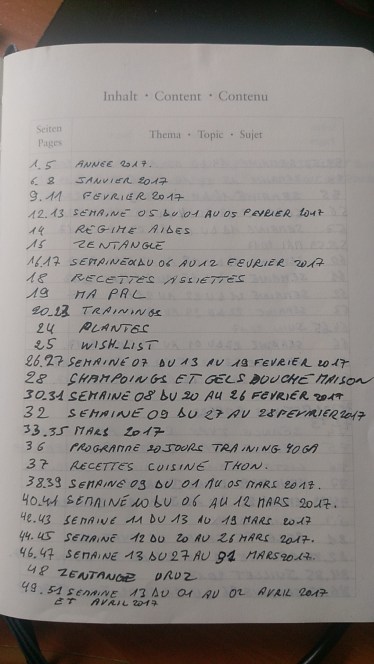 Inhalt • Content • Contenu
Seiten
Pages
Thema • Topic • Sujet
1.5 ANNEE 2017.
6.8 JANVIER 2017
9.11 FEVRIER 2017
12.13 SEMAINE 05 DU 01 AU 05 FEVRIER 2017
14 REGIME AIDES
15 ZENTANGLE
16.17 SEMAINE 06 DU 06 AU 12 FEVRIER 2017
18 RECETTES ASSIETTES
19 MA PAL
20.23 TRAININGS
24 PLANTES
25 WISH-LIST
26.27 SEMAINE 07 DU 13 AU 19 FEVRIER 2017
28 SHAMPOINGS ET GELS DOUCHE MAISON
30.31 SEMAINE 08 DU 20 AU 26 FEVRIER 2017
32 SEMAINE 09 DU 27 AU 28 FEVRIER 2017
33.35 MARS 2017
36 PROGRAMME 20 JOURS TRAINING YOGA
37 RECETTES CUISINE THON.
38.39 SEMAINE 09 DU 01 AU 05 MARS 2017.
40.41 SEMAINE 10 DU 06 AU 12 MARS 2017.
42.43 SEMAINE 11 DU 13 AU 19 MARS 2017
44.45 SEMAINE 12 DU 20 AU 26 MARS 2017.
46.47 SEMAINE 13 DU 27 AU 31 MARS 2017.
48 ZENTANGE
49.51 SEMAINE 13 DU 01 AU 02 AVRIL 2017
ET AVRIL 2017